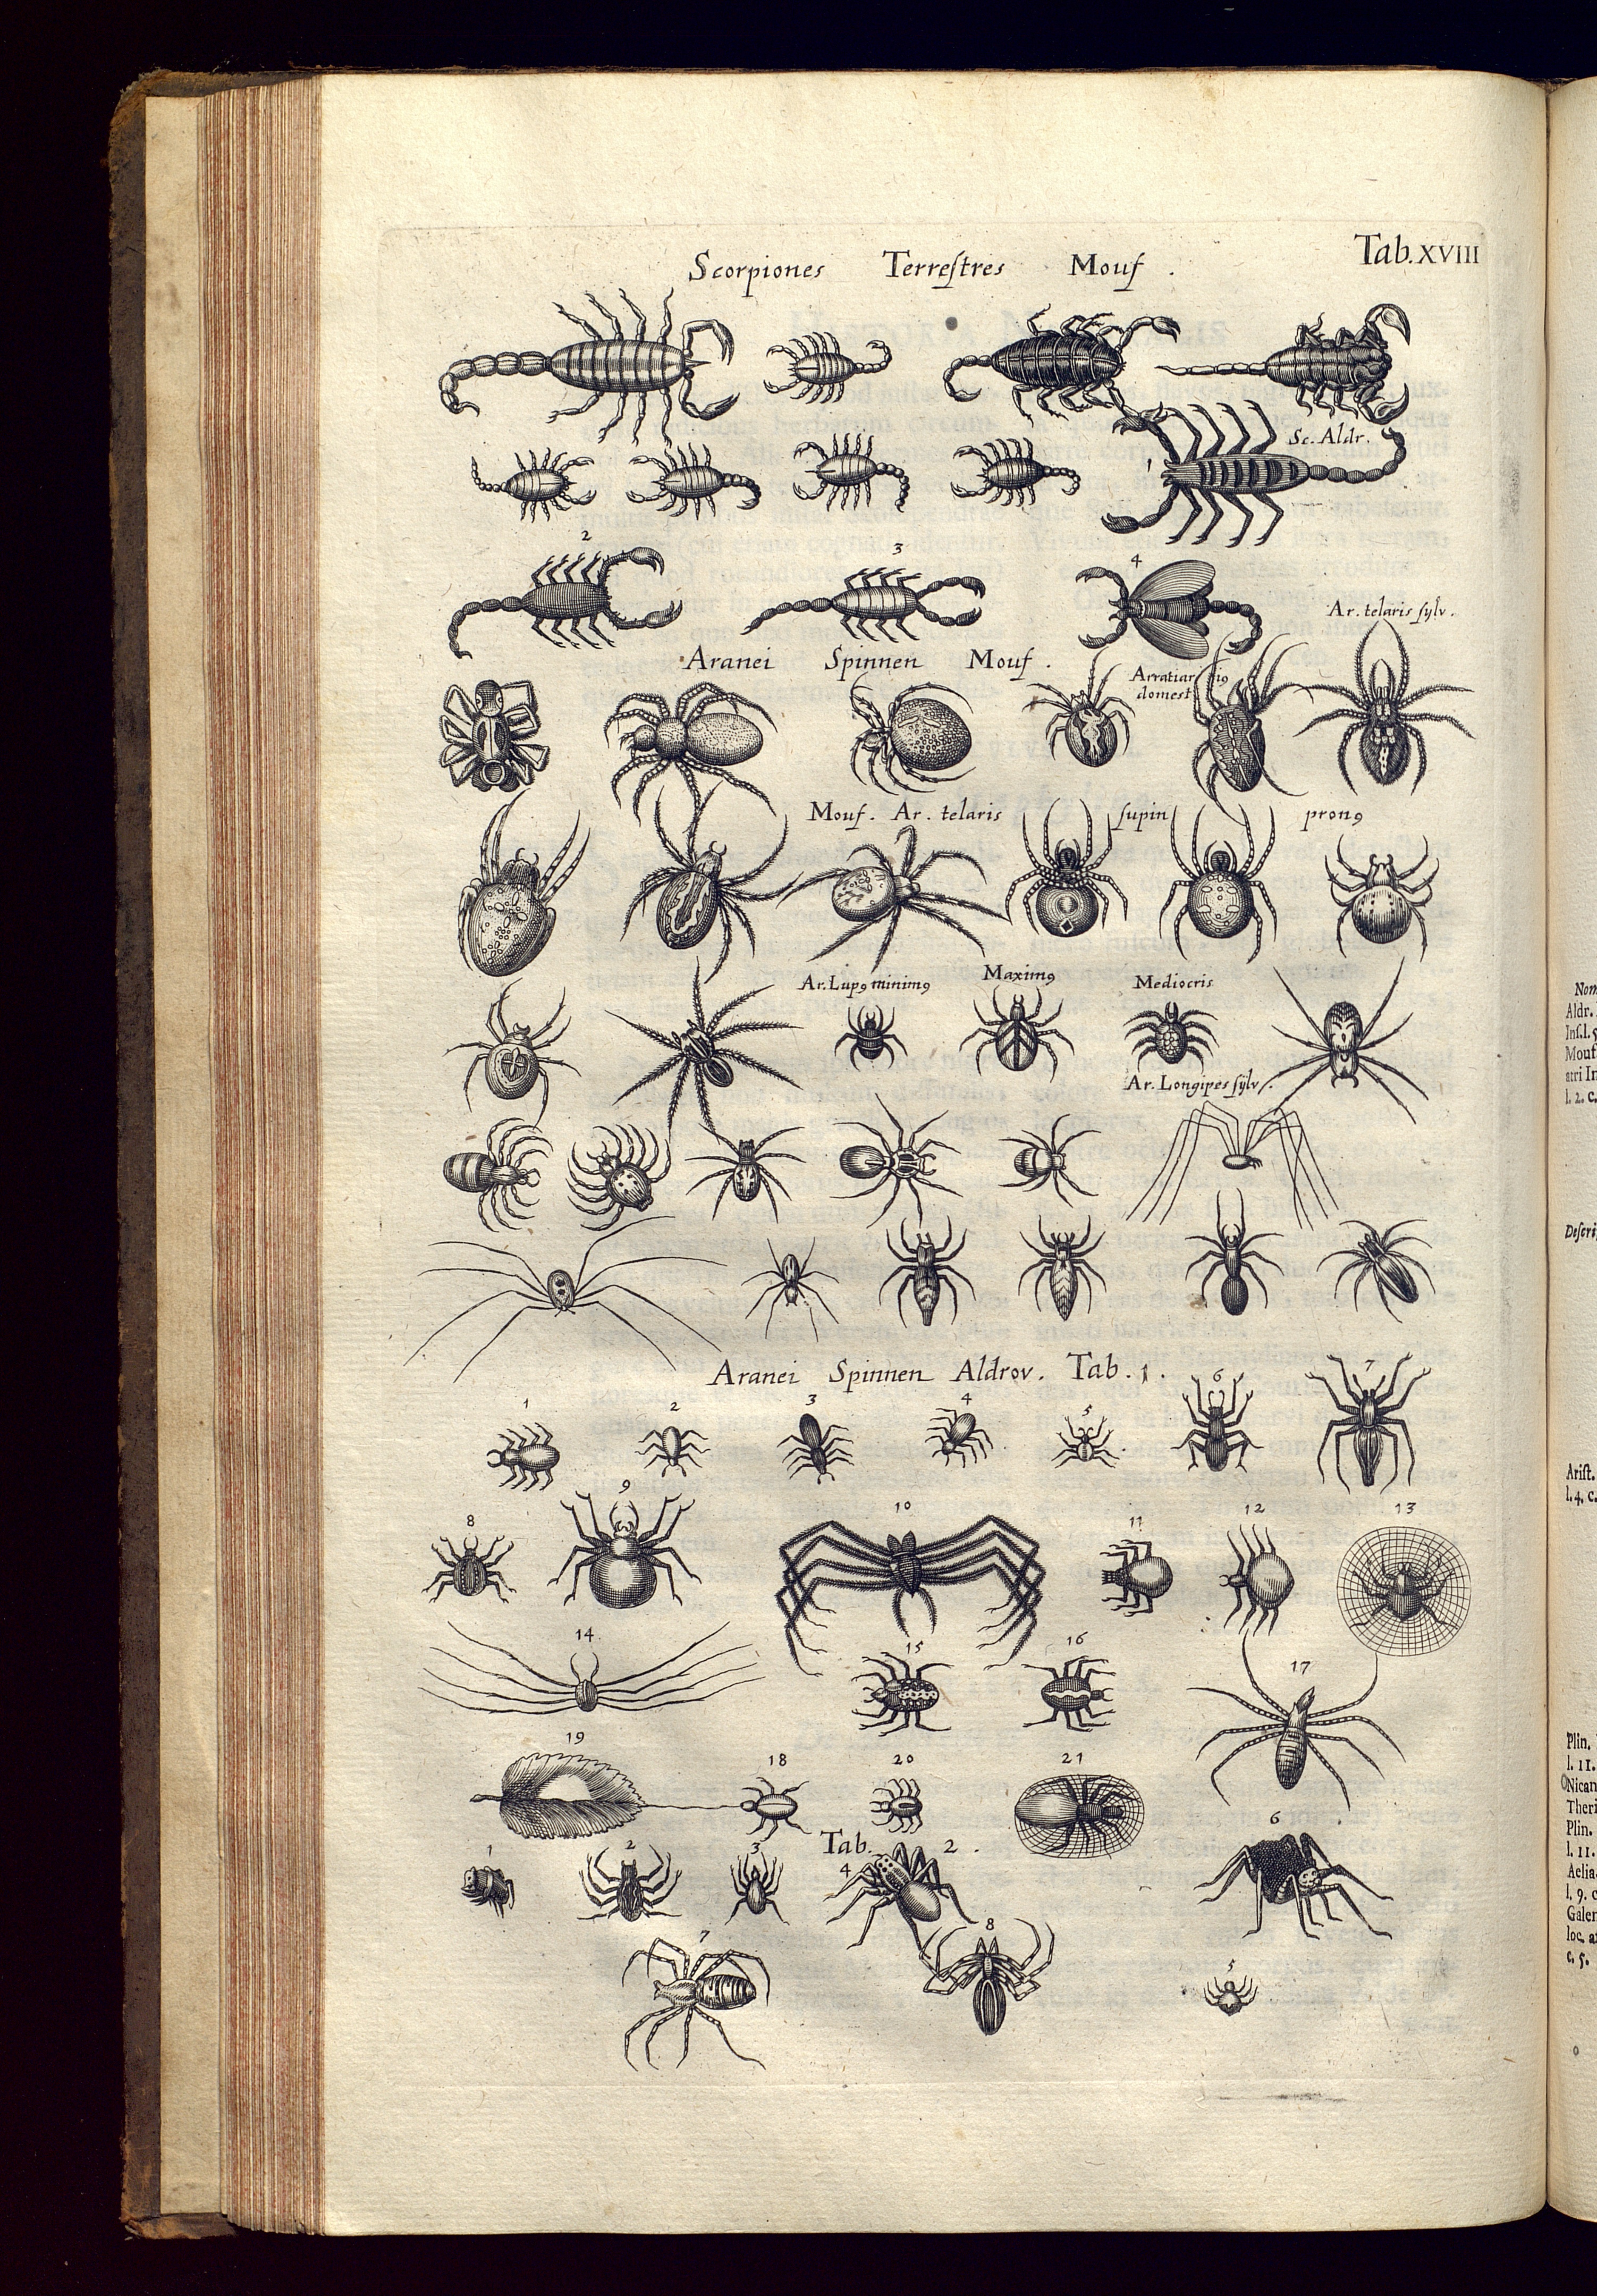 Tab. XVIII
Scorpiones Terreſtres Mouf.
Sc. Aldr.
1
2 3 4
Ar. telaris ſylv.
Aranei Spinnen Mouf.
domest
Mouf. Ar. telaris ſupin pronꝰ
Ar. Lupꝰ minimꝰ Maximꝰ Mediocris
Ar. Longipes ſylv.
Aranei Spinnen Aldrov. Tab. 1.
1 2 3 4 5 6 7
8 9 10 11 12 13
14 15 16 17
19 18 20 21
Tab. 2.
1 2 3 4 6
7 8 5
Aldr.
Inſ.l.
Mouf
l. 2. c.
Deſcri
Ariſt.
l. 4. c.
Plin.
l. 11.
Nican
Theri
Plin.
l. 11.
Aelia
l. 9. c
Galen
loc. a
c. 5.